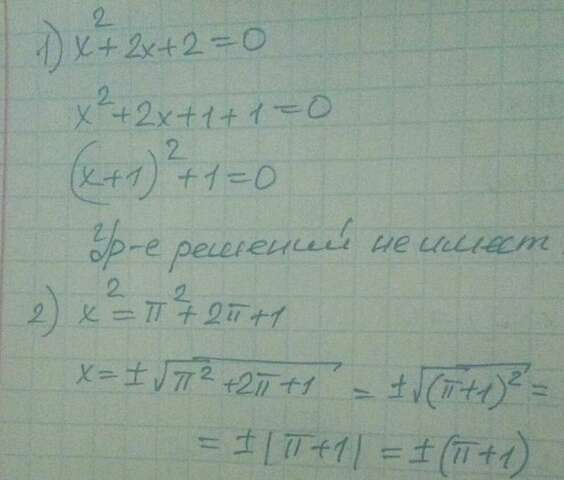 1) x² + 2x + 2 = 0
x² + 2x + 1 + 1 = 0
(x+1)² + 1 = 0
Ур-е решений не имеет
2) x² = π² + 2π + 1
x = ± √π² + 2π + 1 = ± √(π+1)² =
= ± |π+1| = ± (π+1)